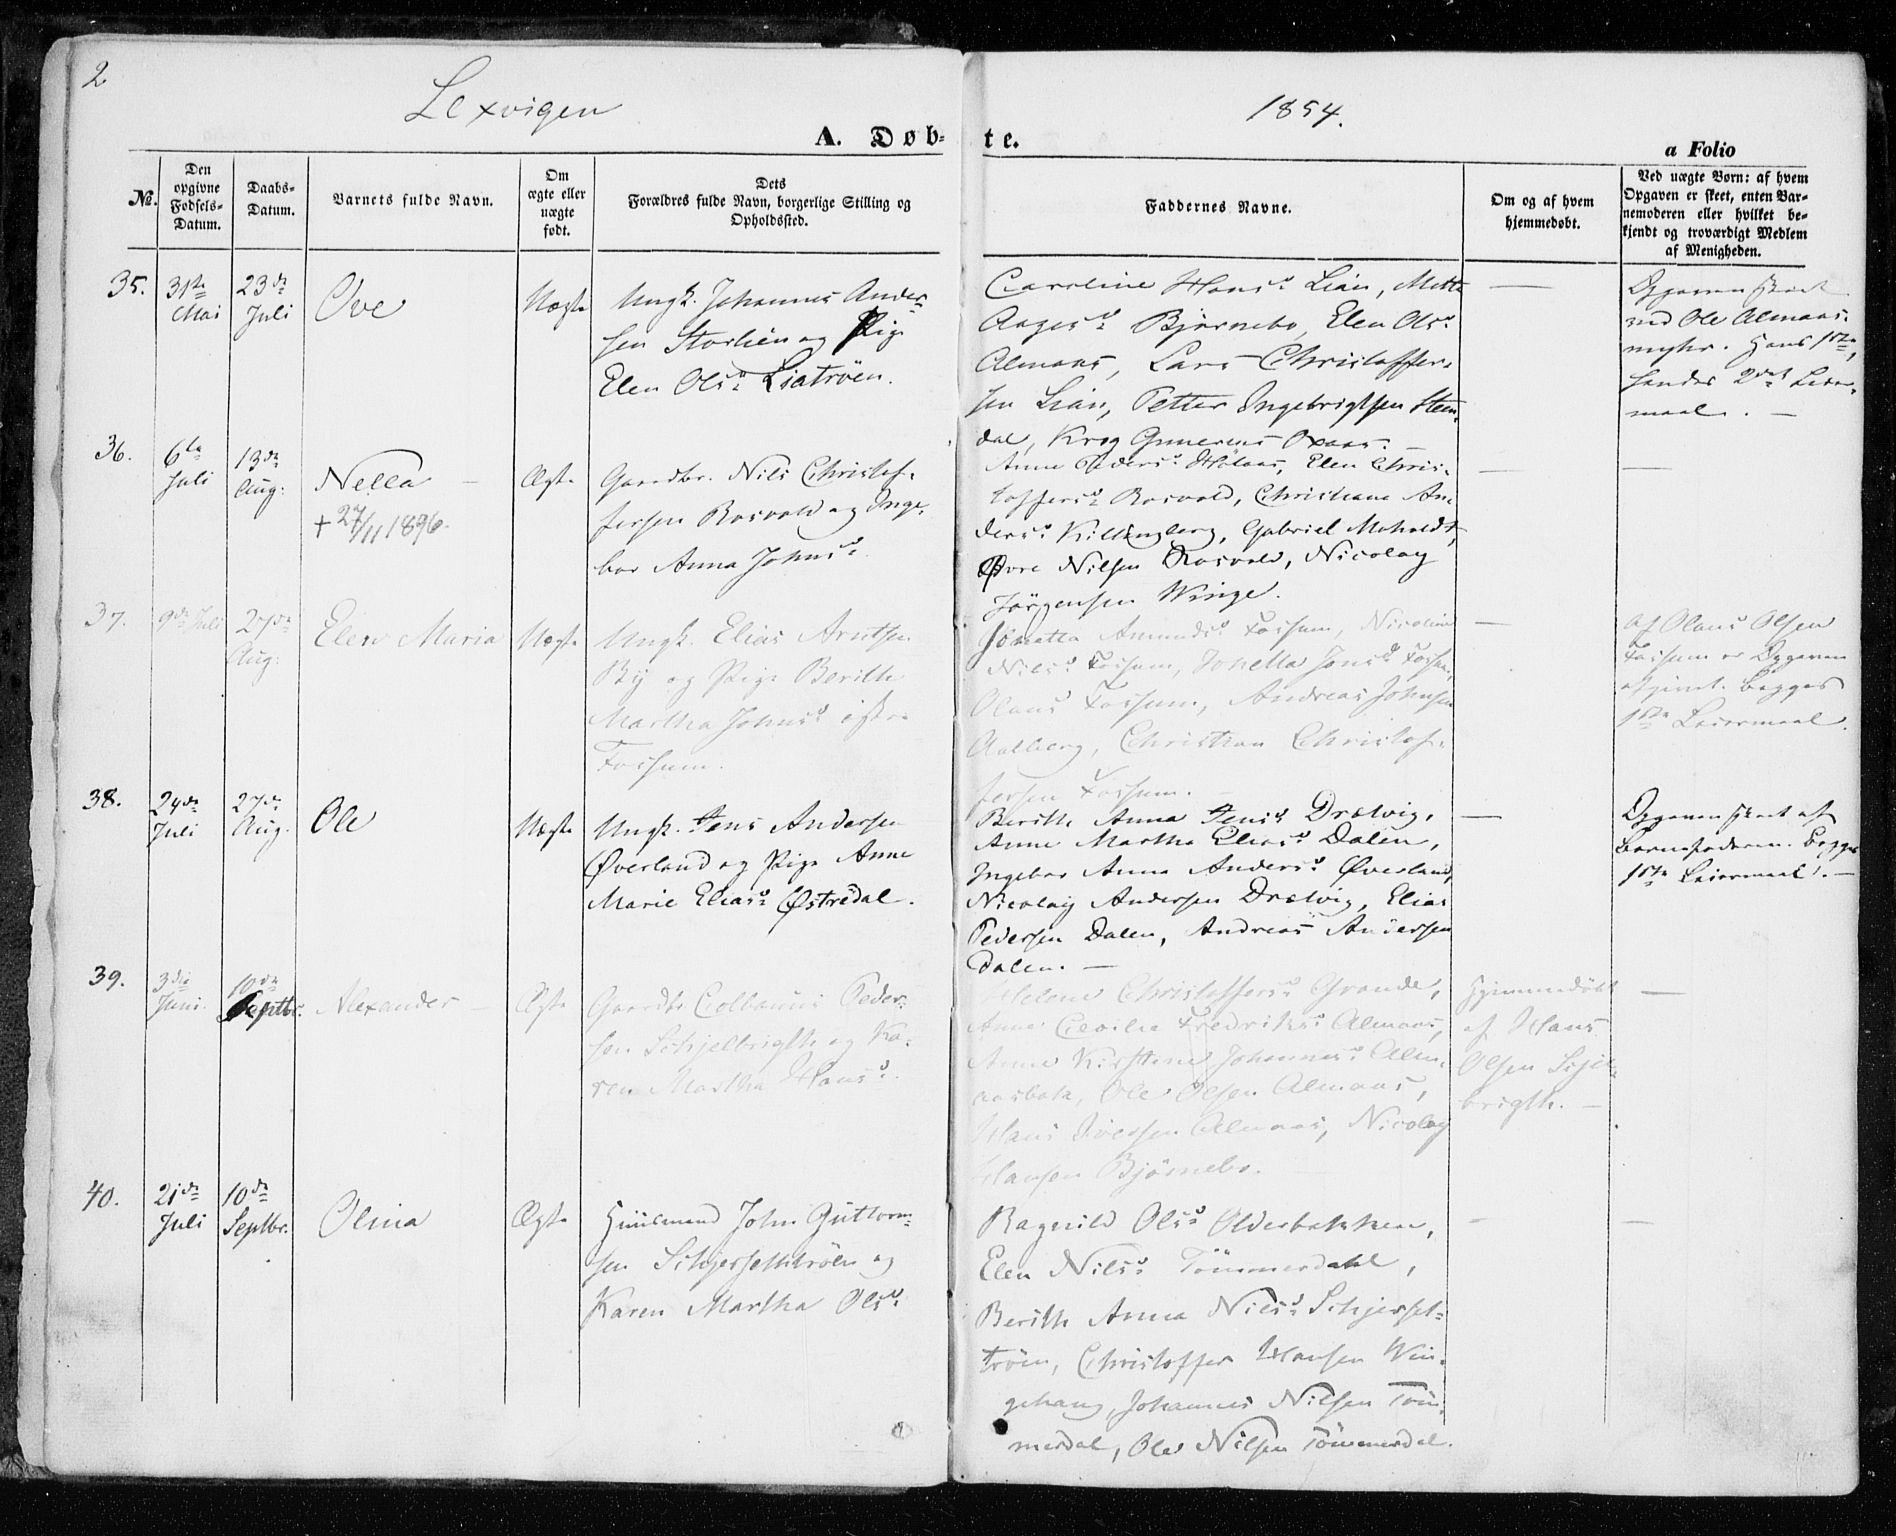 2
Lexvigen
1854.
A. Døb-
te.
a Folio
No.
Den opgivne Fødsels-Datum.
Daabs-Datum.
Barnets fulde Navn.
Om ægte eller uægte født.
Dets Forældres fulde Navn, borgerlige Stilling og Opholdssted.
Faddernes Navne.
Om og af hvem hjemmedøbt.
Ved uægte Børn: af hvem Opgaven er skeet, enten Barnemoderen eller hvilket bekjendt og troværdigt Medlem af Menigheden.
35.
31te Mai
23de Juli
Ove
Uægte
Ungk. Johannes Ander-
sen Storlien og Pige
Elen Olsd. Liatröen.
Caroline Hansd. Lian, Mette
Aagesd. Björnebo, Elen Olsd.
Almaas, Lars Christoffer-
sen Lian, Petter Ingebrigtsen Steen-
dal, Krog Gunnerius Oxaas. —
—
Opgaven skeet
ved Ole Almaas-
myhr. Hans 1ste,
hendes 2det Leier-
maal. —
36.
6te Juli
13de Aug:
Nella —
+ 27/11 1896.
Ægte
Gaardbr. Nils Christof-
fersen Rosvold og Inge-
bor Anna Johnsd.
Anne Pedersd. Hölaas, Elen Chris-
toffersd. Rosvold, Christiana An-
dersd. Killingberg, Gabriel Moholdt,
Øvre Nilsen Rosvold, Nicolay
Jörgensen Winge.
—
—
37.
9de Juli
27de Aug:
Elen Maria
Uægte
Ungk. Elias Arntsen
By og Pige Berith
Martha Johnsd.
Fossum.
Amundsd. Fossum, Nicoline
Nilsd. Fossum, Jonetta Jonsd. Fossum,
Olaus Fossum, Andreas Johnsen
Aalberg, Christian Christof-
fersen Fossum. —
—
Af Olaus Olsen
Fossum er Opgaven
afgivet. Begges
1ste Leiermaal.
38.
24de Juli
27de Aug.
Ole
Uægte
Ungk. Jens Andersen
Øverland og Pige Anne
Marie Eliasd. Østredal.
Berith Anna Jensd. Drætvig,
Anne Martha Eliasd. Dalen,
Ingebor Anna Andersd. Øverland,
Nicolay Andersen Drætvig, Elias
Pedersen Dalen, Andreas Andersen
Dalen. —
—
Opgaven skeet af
Barnefaderen. Begges
1ste Leiermaal. —
39.
3die Juni.
10de Septbr.
Alexander —
Ægte
Gaardbr. Colbanus Peder-
sen Schjelbrigth og Ka-
ren Martha Hansd.
Helene Christoffersd. Grande,
Anne Cecilie Fredriksd. Almaas,
Anne Kirstine Johannesd. Alm-
aasbak, Ole Olsen Almaas,
Hans Iversen Almaas, Nicolay
Hansen Björnebo.
Hjemmedöbt
af Hans
Olsen Schjel-
brigth. —
—
40.
21de Juli
10de Septbr.
Olina
Ægte
Huusmand John Guttorm-
sen Schjersettröen og
Karen Martha Olsd.
Ragnild Olsd. Olderbakken,
Elen Nilsd. Tömmerdahl,
Berith Anna Nilsd. Schjerset-
tröen, Christoffer Hansen Win-
gehaug, Johannes Nilsen Töm-
merdal, Ole Nilsen Tömmerdal.
—
—